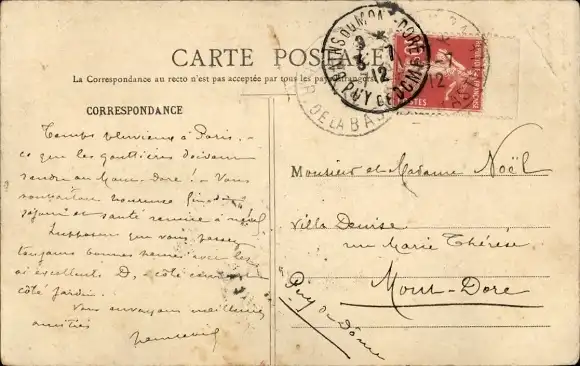 CARTE POSTALE
La Correspondance au recto n'est pas acceptée par tous les pays étrangers
CORRESPONDANCE
Temps pluvieux à Paris. -
ce que les gouttières doivent
rendre au Mont-Dore! - Vous
souhaitons heureuse fin de
séjour et santé remise à
Suppose que vous passez
toujours bonnes heures avec les
si excellents D, - côté cour et
côté jardin. -
Vous envoyons meilleures
amitiés
Monsieur et Madame Noël
Villa Denise
rue Marie Thérèse
Mont-Dore
Puy de Dôme
BAINS DU MONT-DORE
5-7
12
PUY DE DOME
R. DE LA BAS
12
POSTES
10